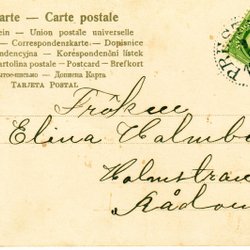 arte — Carte postale
ein — Union postale universelle
— Correspondenzkarte — Dopisnice
ondencyjna — Korespondénčni listek
artolina postale — Postcard — Brefkort
ытое-письмо — Дописна Карта
TARJETA POSTAL
PRES
Fröken
Elina Holmbe
Holmstra
Rådo